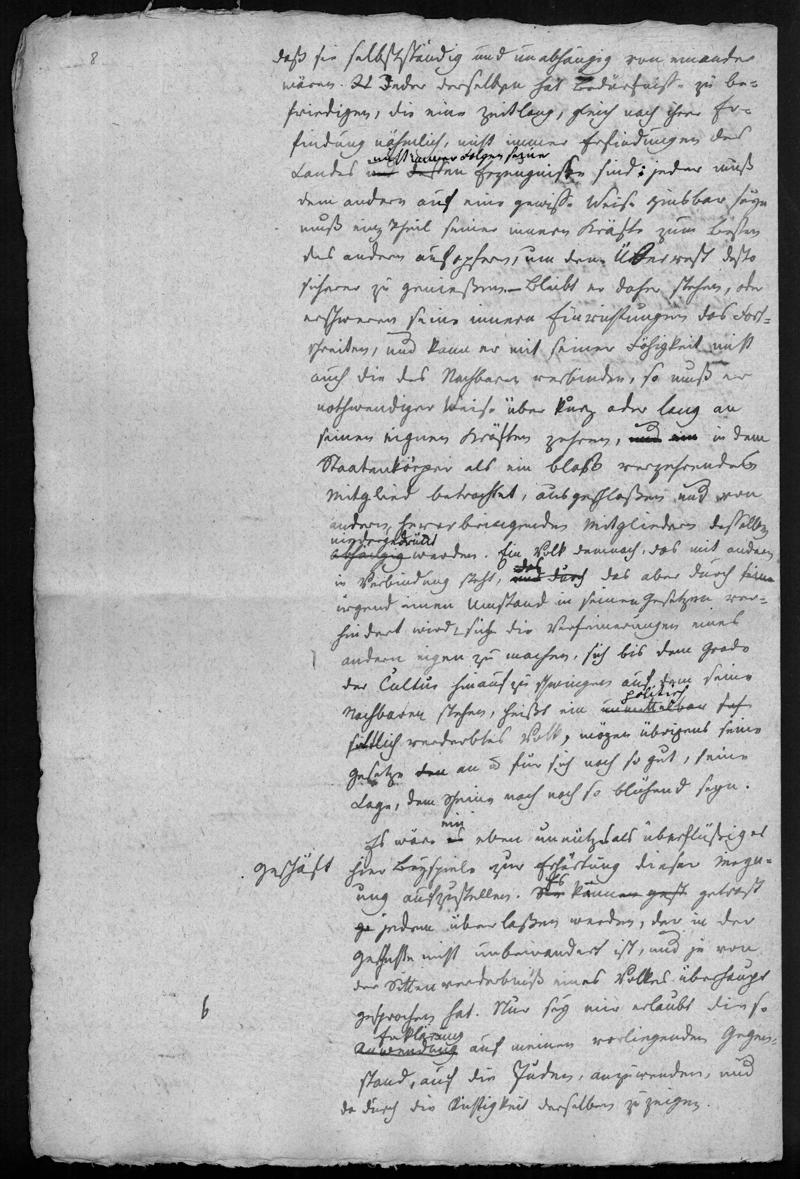 8
daß sie selbstständig und unabhängig von einander
wären. Jeder derselben hat Bedürfnisse zu be=
friedigen, die eine Zeitlang, gleich nach ihrer Er=
findung nähmlich, nicht immer Erfindungen des
nicht immer Folgen seiner
Landes und dessen Erzeugnisse sind; jeder muß
dem andern auf eine gewisse Weise zinsbar seyn
muß einen Theil seiner innern Kräfte zum Besten
des andern aufopfern, um den Überrest desto
sicherer zu genießen – Bleibt er dafür stehen, oder
erschweren seine innern Einrichtungen das Fort=
schreiten, und kann er mit seiner Fähigkeit nicht
auch die des Nachbaren verbinden, so muß er
nothwendiger Weise über kurz oder lang an
seinen eignen Kräften zehren, und ein in dem
Staatenkörper als ein bloß verzehrendes
Mitglied betrachtet, ausgeschloßen und von
andern, hervorbringenden Mitgliedern desselben
niedergedrückt
abhängig werden. Ein Volk demnach, das mit andern
das
in Verbindung steht, und durch das aber durch
irgend einen Umstand in seinen Gesetzen ver=
hindert wird, sich die Verfeinerungen eines
andern eigen zu machen, sich bis dem Grade
der Cultur hinaufzuschwingen auf dem seine
politisch
Nachbaren stehen, heißt ein unmittelbar
sittlich verderbtes Volk, mögen übrigens seine
Gesetze den an u für sich noch so gut, seine
Lage, dem Scheine nach noch so blühend seyn.
ein
Es wäre es eben unnützes als überflüßiges
Geschäft hier Beyspiele zur Erhärtung dieser Mey=
nung aufzustellen. Es kann getrost
jedem überlaßen werden, der in der
Geschichte nicht unbewandert ist, und je von
der Sittenverderbniß eines Volkes überhaupt
6
gesprochen hat. Nur sey mir erlaubt diese
Erklärung
Anwendung auf meinen vorliegenden Gegen=
stand, auf die Juden, anzuwenden, und
dadurch die Richtigkeit derselben zu zeigen.